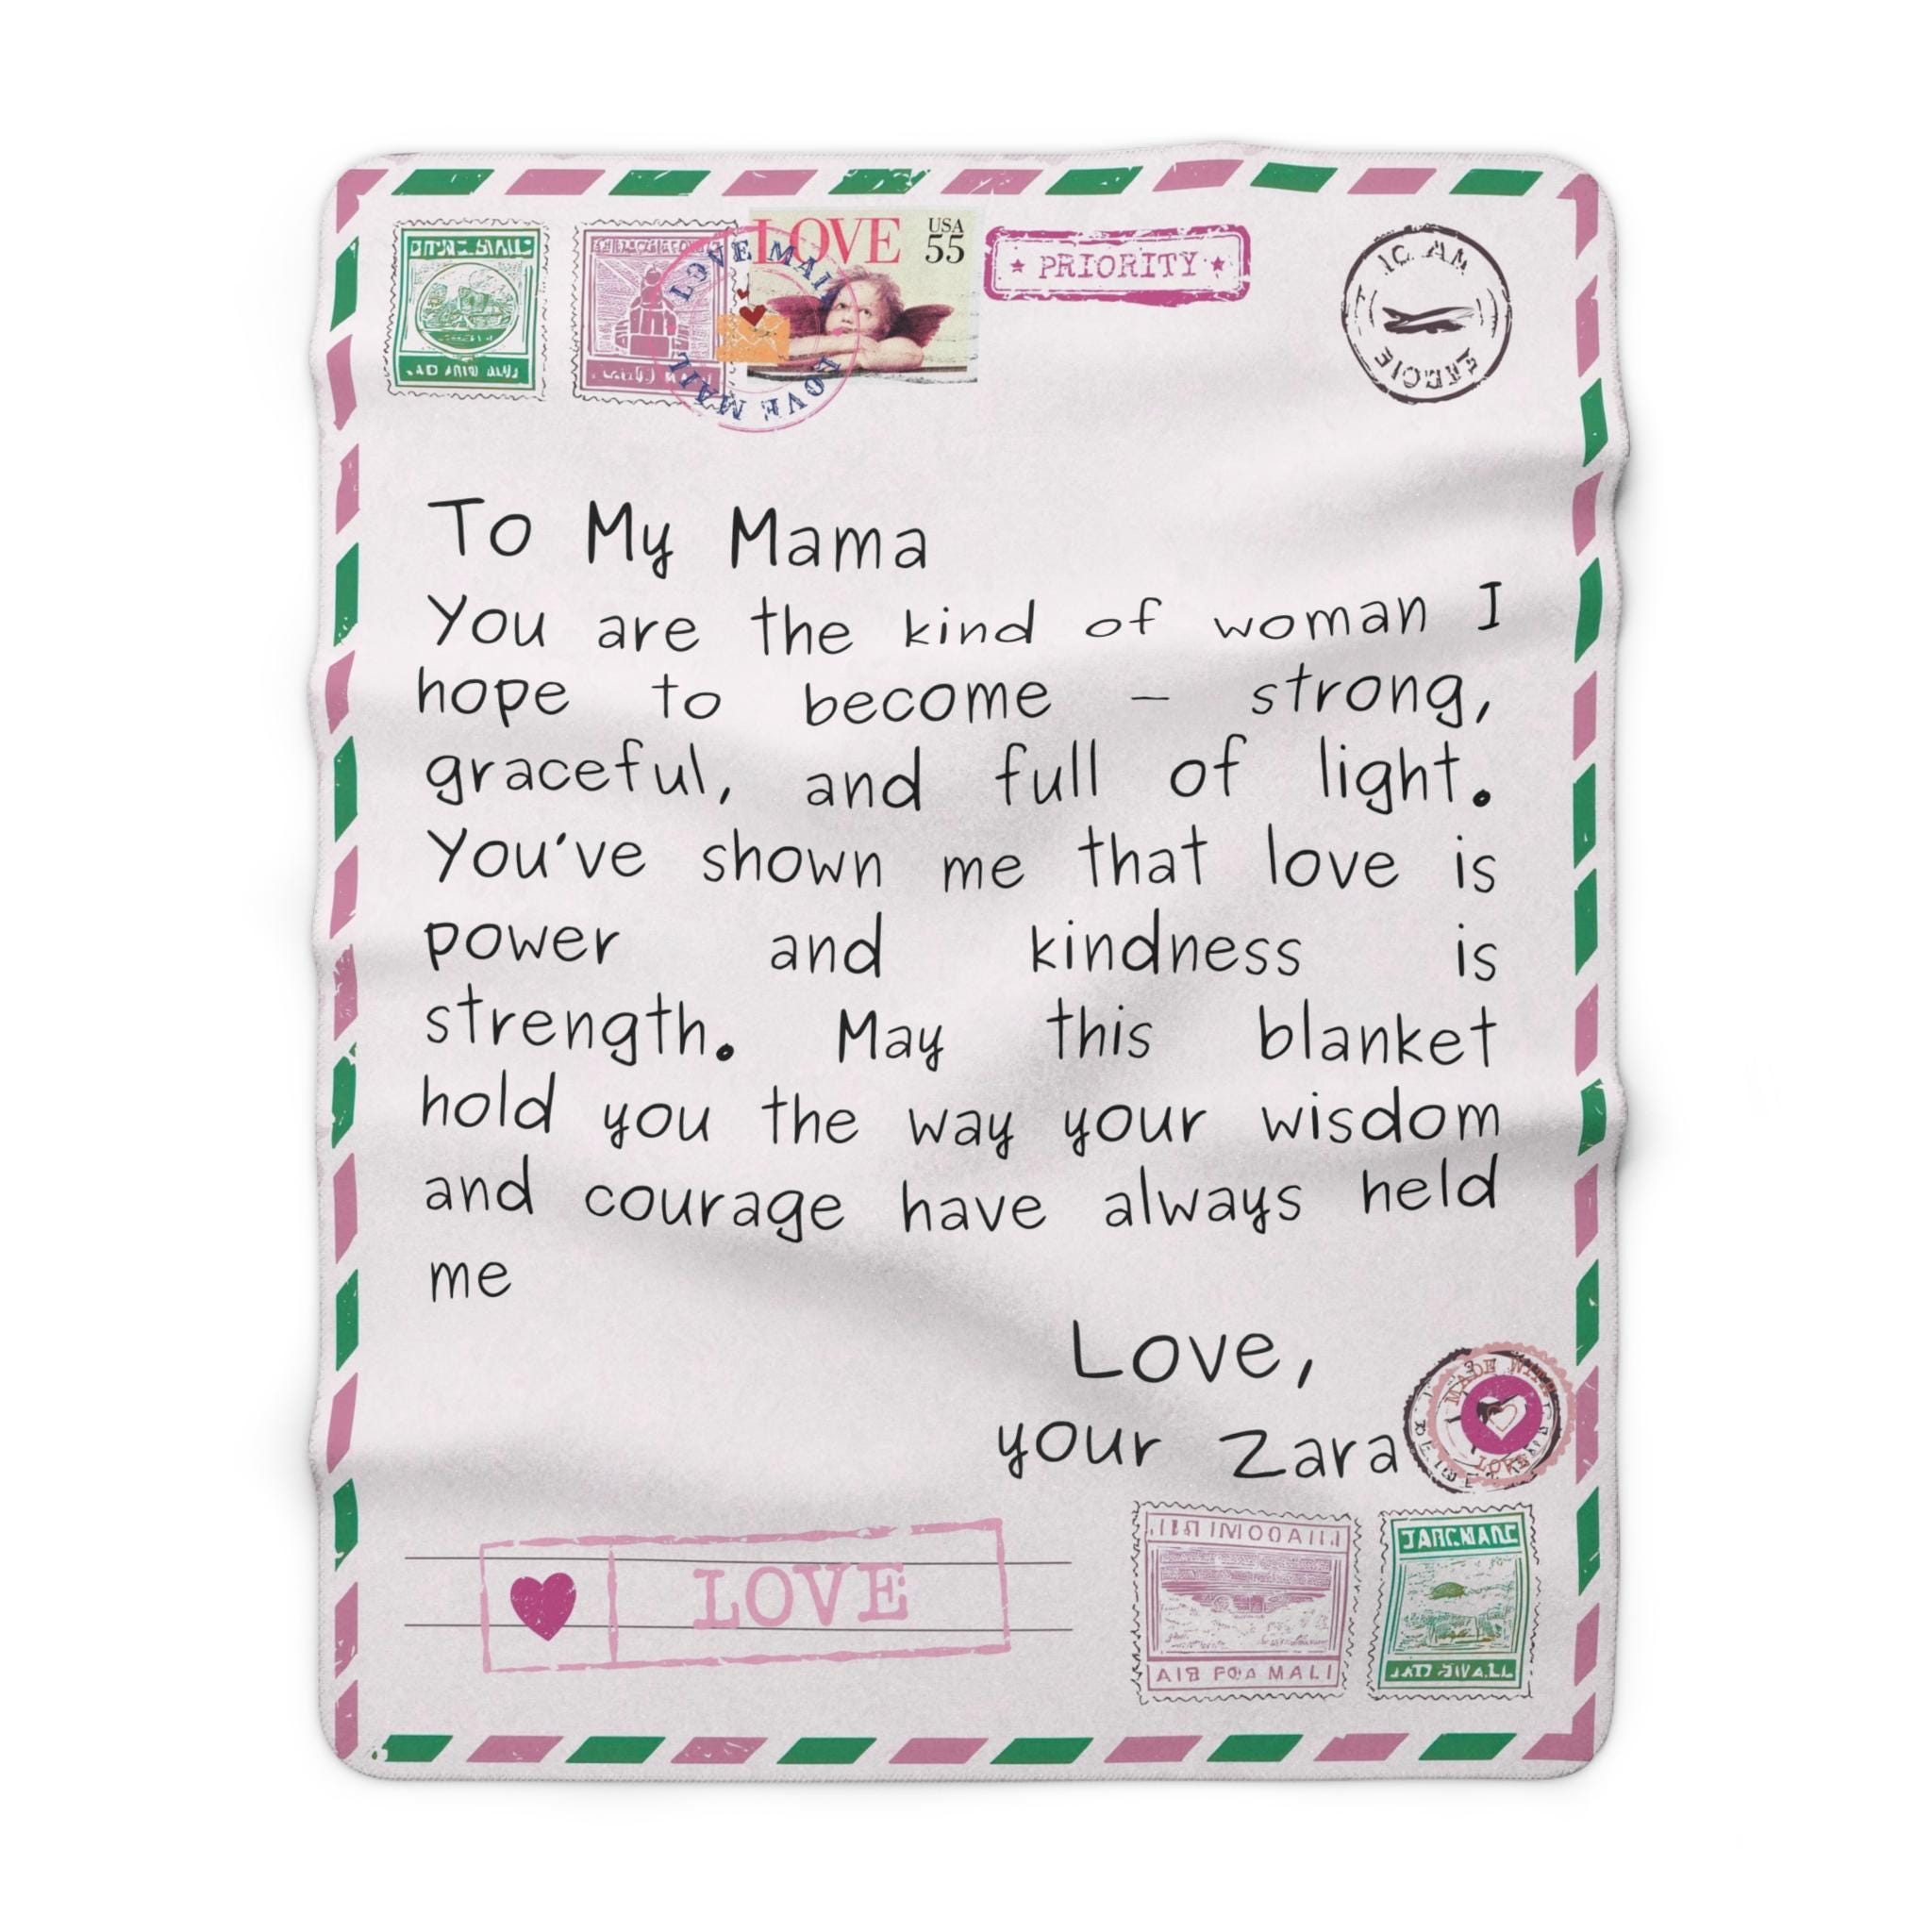 LOVE
USA
55
LOVE MAIL
LOVE MAIL
PRIORITY
To My Mama
You are the kind of woman I
hope to become – strong,
graceful, and full of light.
You've shown me that love is
power and kindness is
strength. May this blanket
hold you the way your wisdom
and courage have always held
me
Love,
your Zara
MADE WITH
LOVE
LOVE
AIR FOA MALI